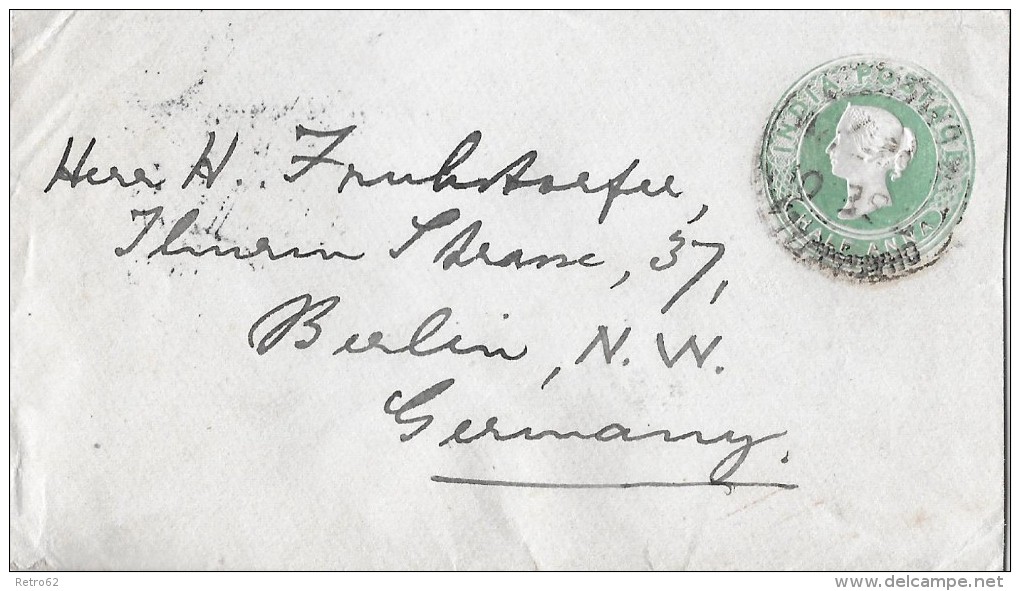 INDIA POSTAGE
HALF ANNA
Herr H. Fruhstorfer,
Thurm Strasse, 37,
Berlin, N.W.
Germany.
Retro62
www.delcampe.net